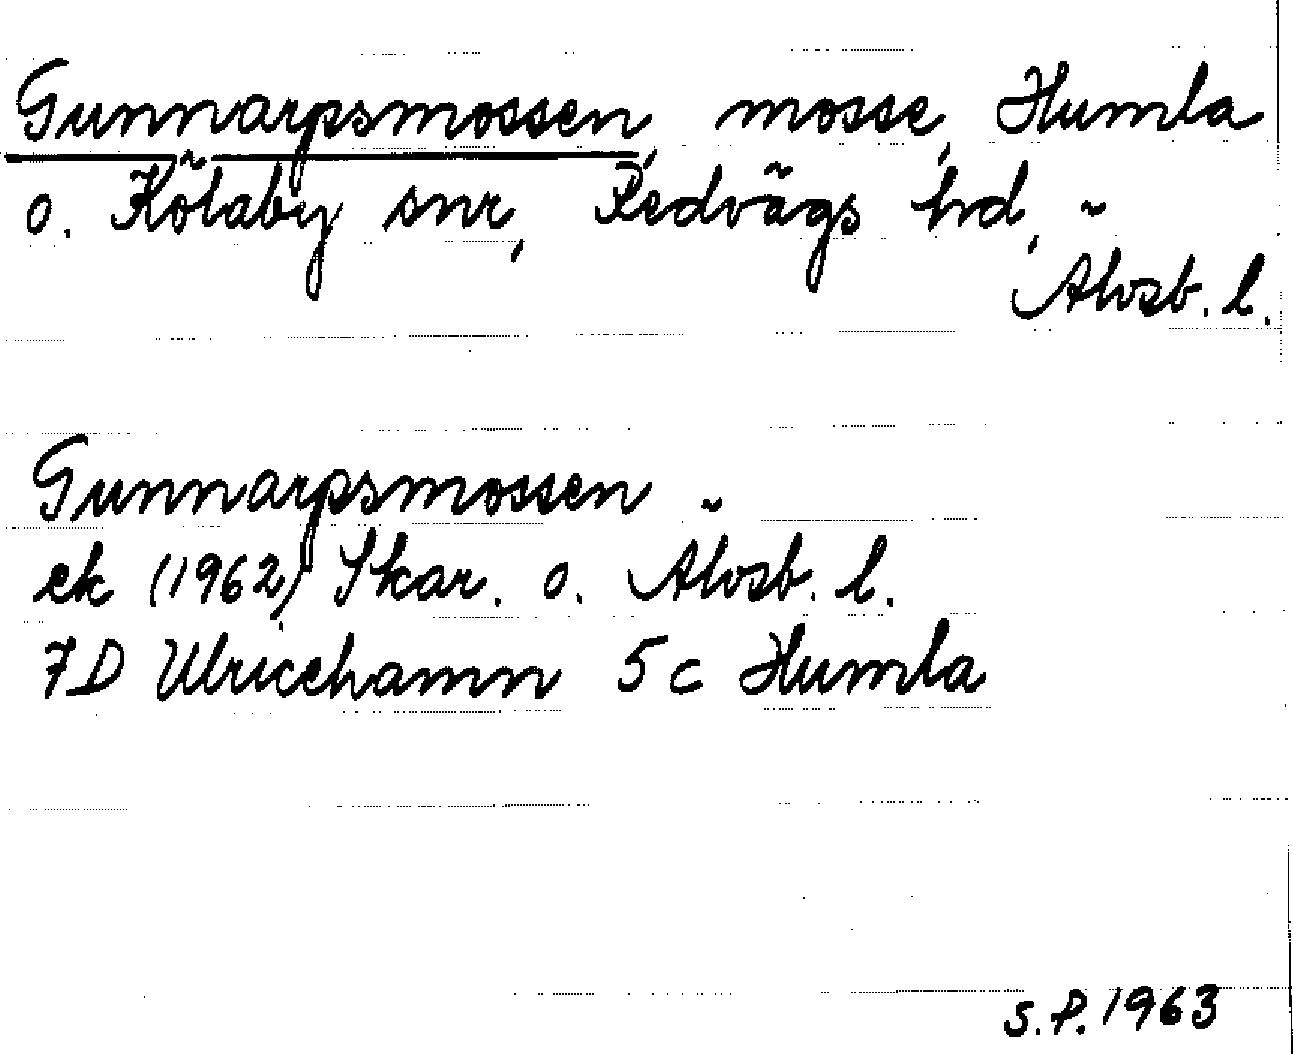 Gunnarpsmossen, mosse, Humla
o. Kölaby snr, Redvägs hd,
Älvsb. l.
Gunnarpsmossen
ek (1962) Skar. o. Älvsb. l.
7D Ulricehamn 5c Humla
S.P. 1963